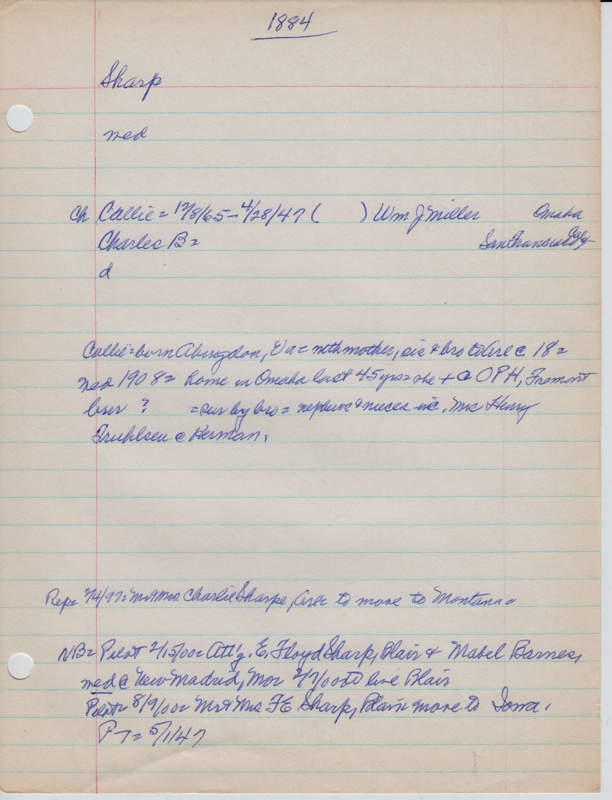 1884
Sharp
med
Ch Callie = 12/8/65 - 4/28/47 ( ) Wm J Miller Omaha
Charles B = San Francisco
d
Callie = born Abingdon, Va = mother, sis & bro to Are @ 18 =
med 1908 = home in Omaha last 45 yrs = she + @ OPH, Fremont
bur ? = sur by bro = nephews & nieces inc. Mrs Henry
Fruhlsen @ Herman.
Rep = /4/97 = Mr & Mrs Charlie Sharpe, Arer to move to Montana.
NB = Pilot 2/15/00 = Att'y. E. Floyd Sharp, Blair & Mabel Barnes,
med @ New Madrid, Mo = 2/7/00 to live Blair
Pilot = 8/9/00 = Mr & Mrs F E Sharp, Blair move to Iowa.
P T = 5/1/47